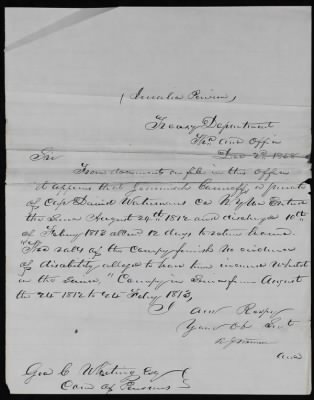 (Invalid Pension)
Treasury Department
3d Aud Office
Sir
From documents on file in this Office
it appears that a private
of Capt David Co N Y
the Service August 24th 1812 and discharged 10th
of Feby 1813 allowed 12 days to return home
The rolls of the Company furnish no evidence
of disability alleged to have been incurred whilst
in the Service, Company in Service from August
the 24 1812 to 24 Feby 1813,
I am Respy
Your Ob Svt
Aud
Geo C Whiting Esq
Com of Pensions